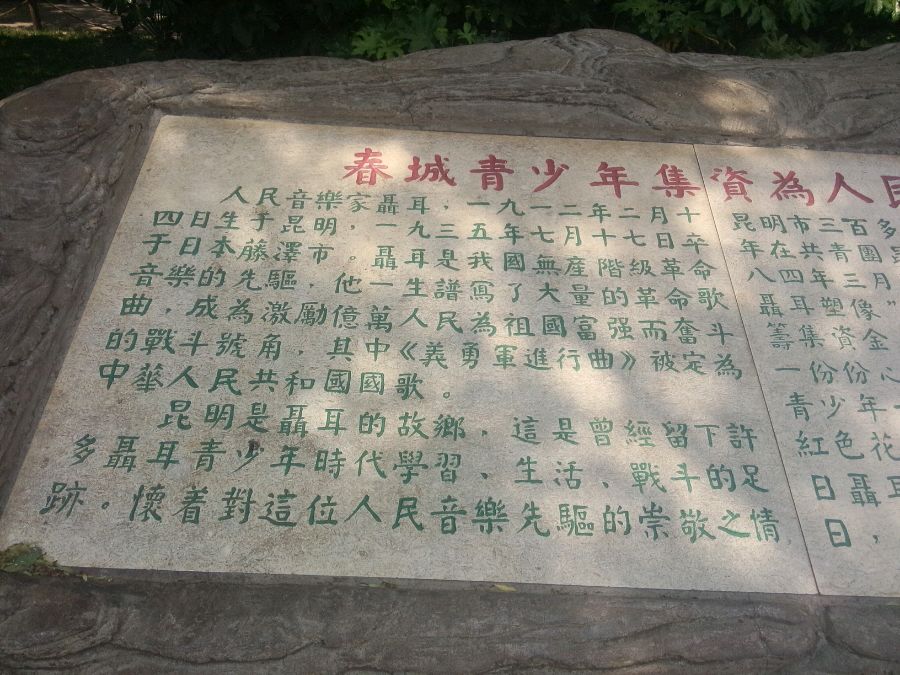 春城青少年集資為人民
人民音樂家聶耳，一九一二年二月十
四日生于昆明，一九三五年七月十七日卒
于日本藤澤市。聶耳是我國無産階級革命
音樂的先驅，他一生譜寫了大量的革命歌
曲，成為激勵億萬人民為祖國富强而奮斗
的戰斗號角，其中《義勇軍進行曲》被定為
中華人民共和國國歌。
昆明是聶耳的故鄉，這是曾經留下許
多聶耳青少年時代學習、生活、戰斗的足
跡。懷着對這位人民音樂先驅的崇敬之情
昆明市三百多
年在共青團
八四年三月
聶耳塑像”
籌集資金
一份份心
青少年
紅色花
日聶耳
日，